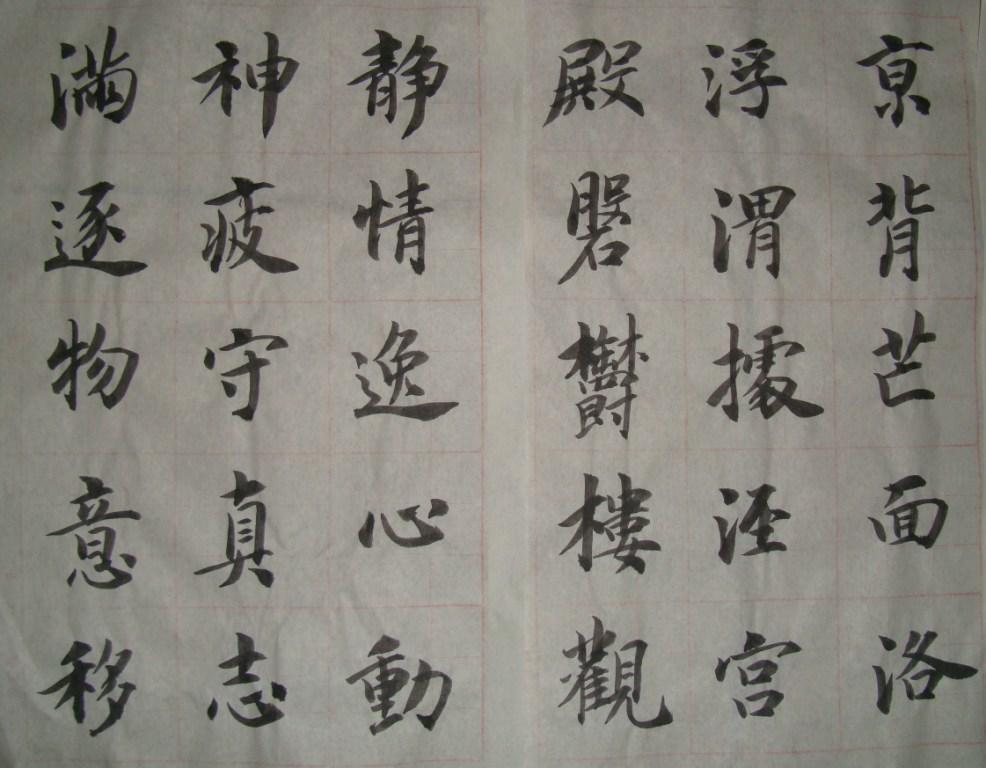 京背芒面洛
浮渭據涇宫
殿磐鬱樓觀
静情逸心動
神疲守真志
滿逐物意移